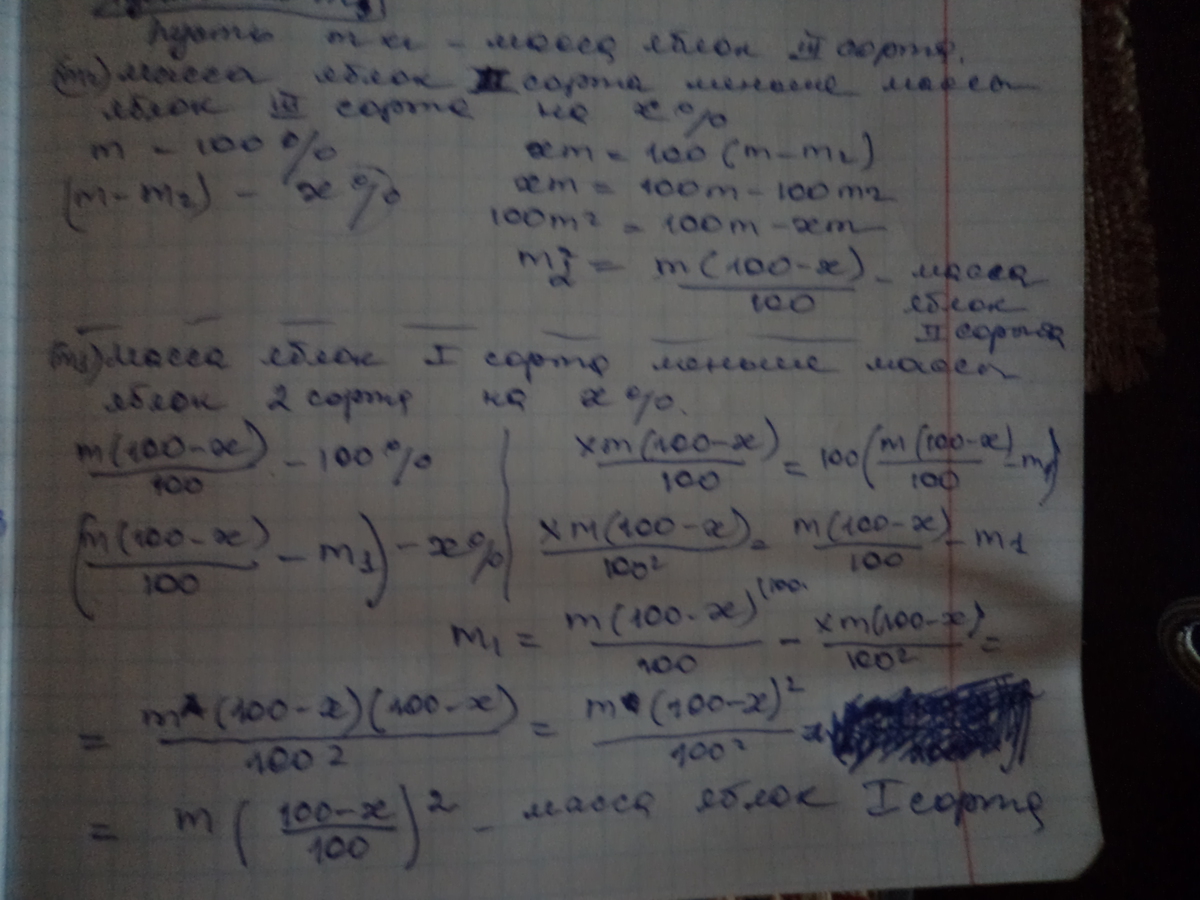 Пусть m кг – масса яблок III сорта.
(m2) масса яблок II сорта меньше массы
яблок III сорта на x%
m – 100%
(m – m2) – x%
xm = 100(m – m2)
xm = 100m – 100m2
100m2 = 100m – xm
m2 = m(100 – x)/100 – масса
яблок
II сорта
(m1) масса яблок I сорта меньше массы
яблок 2 сорта на x%.
m(100 – x)/100 – 100%
(m(100 – x)/100 – m1) – x%
xm(100 – x)/100 = 100(m(100 – x)/100 – m1)
xm(100 – x)/100² = m(100 – x)/100 – m1
m1 = m(100 – x)(100/100 – xm(100 – x)/100² =
= m(100 – x)(100 – x)/100² = m(100 – x)²/100² =
= m((100 – x)/100)² – масса яблок I сорта